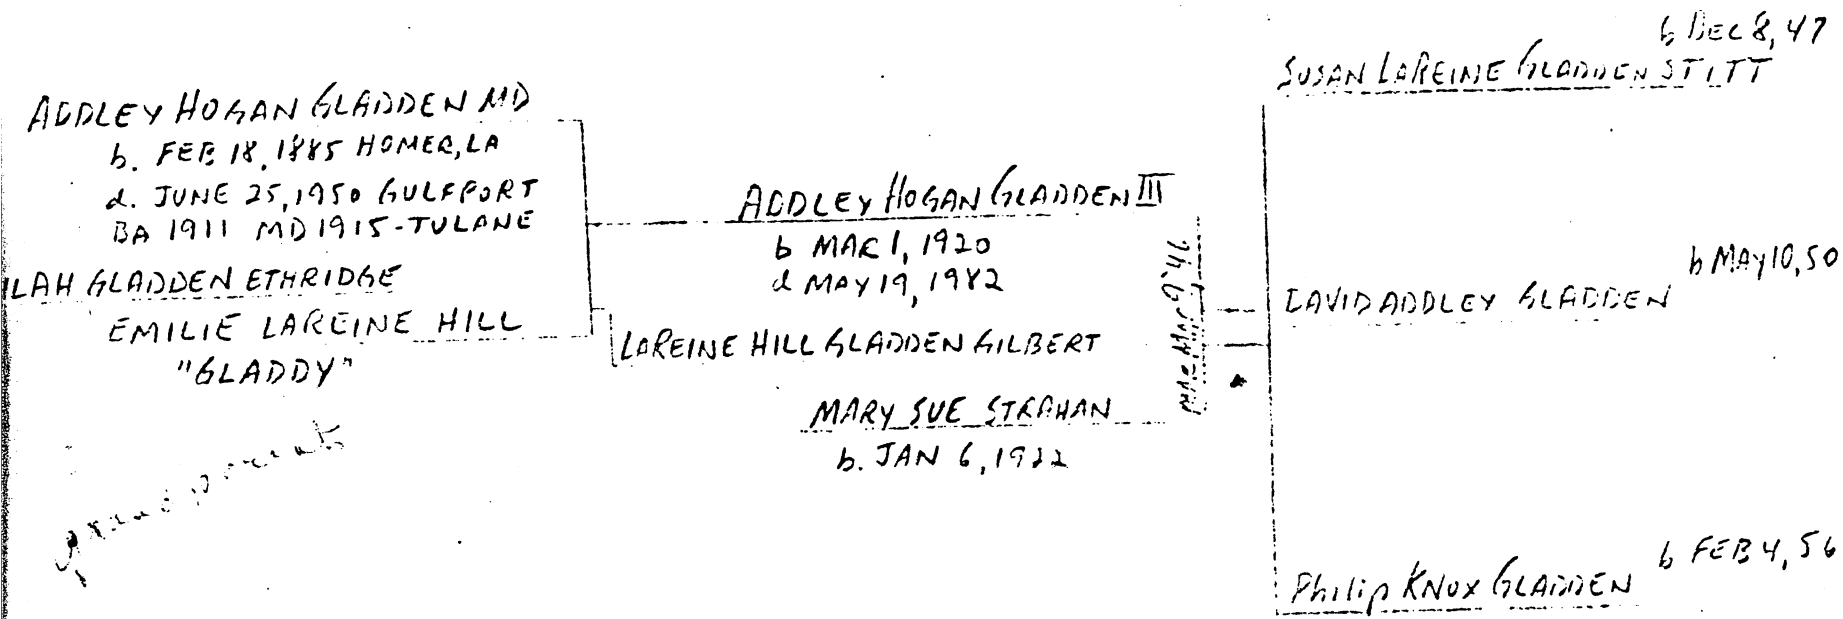 ADDLEY HOGAN GLADDEN MD
b. FEB 18, 1885 HOMER, LA
d. JUNE 25, 1950 GULFPORT
BA 1911 MD 1915 - TULANE
ILAH GLADDEN ETHRIDGE
EMILIE LAREINE HILL
"GLADDY"
grandparents
ADDLEY HOGAN GLADDEN III
b MAR 1, 1920
d MAY 19, 1982
LAREINE HILL GLADDEN GILBERT
MARY SUE STRAHAN
b. JAN 6, 1922
b DEC 8, 47
SUSAN LAREINE GLADDEN STITT
b MAY 10, 50
DAVID ADDLEY GLADDEN
b FEB 4, 56
Philip KNOX GLADDEN